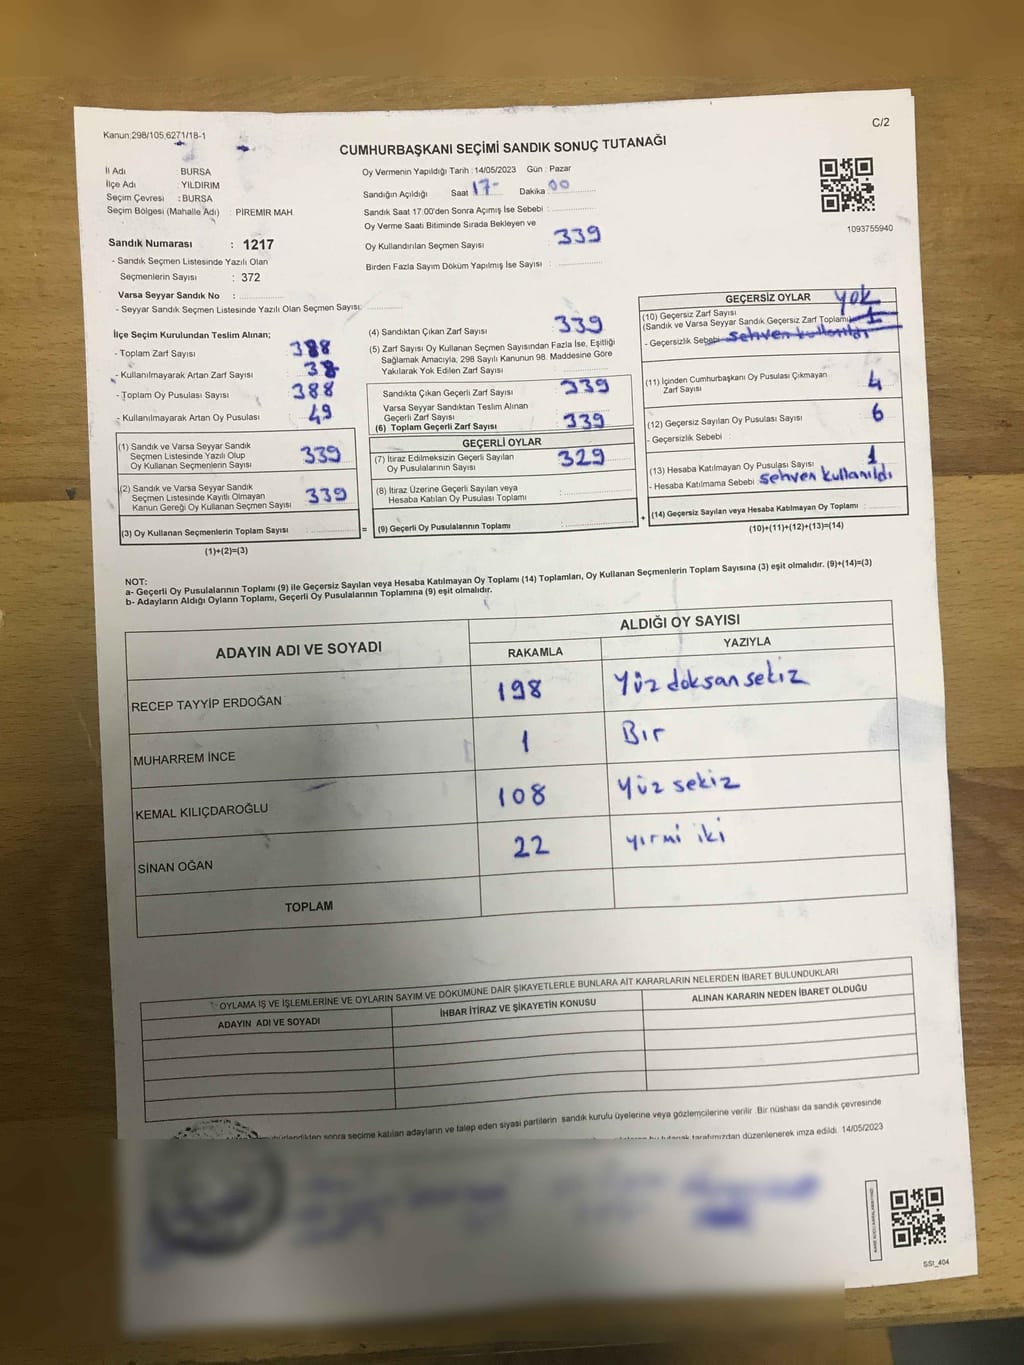 Kanun:298/105,6271/18-1
C/2
CUMHURBAŞKANI SEÇİMİ SANDIK SONUÇ TUTANAĞI
İl Adı BURSA
İlçe Adı : YILDIRIM
Seçim Çevresi : BURSA
Seçim Bölgesi (Mahalle Adı) : PİREMİR MAH.
Sandık Numarası : 1217
- Sandık Seçmen Listesinde Yazılı Olan
Seçmenlerin Sayısı : 372
Varsa Seyyar Sandık No :
- Seyyar Sandık Seçmen Listesinde Yazılı Olan Seçmen Sayısı:
Oy Vermenin Yapıldığı Tarih : 14/05/2023 Gün : Pazar
Sandığın Açıldığı Saat 17- Dakika 00
Sandık Saat 17.00'den Sonra Açımış İse Sebebi :
Oy Verme Saati Bitiminde Sırada Bekleyen ve
Oy Kullandırılan Seçmen Sayısı 339
Birden Fazla Sayım Döküm Yapılmış İse Sayısı :
1093755940
İlçe Seçim Kurulundan Teslim Alınan;
- Toplam Zarf Sayısı 388
- Kullanılmayarak Artan Zarf Sayısı
- Toplam Oy Pusulası Sayısı 388
- Kullanılmayarak Artan Oy Pusulası 49
(1) Sandık ve Varsa Seyyar Sandık
Seçmen Listesinde Yazılı Olup
Oy Kullanan Seçmenlerin Sayısı 339
(2) Sandık ve Varsa Seyyar Sandık
Seçmen Listesinde Kayıtlı Olmayan
Kanun Gereği Oy Kullanan Seçmen Sayısı 339
(3) Oy Kullanan Seçmenlerin Toplam Sayısı :
(1)+(2)=(3)
=
(4) Sandıktan Çıkan Zarf Sayısı 339
(5) Zarf Sayısı Oy Kullanan Seçmen Sayısından Fazla İse, Eşitliği
Sağlamak Amacıyla, 298 Sayılı Kanunun 98. Maddesine Göre
Yakılarak Yok Edilen Zarf Sayısı
Sandıkta Çıkan Geçerli Zarf Sayısı 339
Varsa Seyyar Sandıktan Teslim Alınan
Geçerli Zarf Sayısı
(6) Toplam Geçerli Zarf Sayısı 339
GEÇERLİ OYLAR
(7) İtiraz Edilmeksizin Geçerli Sayılan
Oy Pusulalarının Sayısı 329
(8) İtiraz Üzerine Geçerli Sayılan veya
Hesaba Katılan Oy Pusulası Toplamı
(9) Geçerli Oy Pusulalarının Toplamı
+
GEÇERSİZ OYLAR yok
(10) Geçersiz Zarf Sayısı
(Sandık ve Varsa Seyyar Sandık Geçersiz Zarf Toplamı) 1
- Geçersizlik Sebebi sehven kullanıldı
(11) İçinden Cumhurbaşkanı Oy Pusulası Çıkmayan
Zarf Sayısı 4
(12) Geçersiz Sayılan Oy Pusulası Sayısı 6
- Geçersizlik Sebebi :
(13) Hesaba Katılmayan Oy Pusulası Sayısı 1
- Hesaba Katılmama Sebebi : sehven kullanıldı
(14) Geçersiz Sayılan veya Hesaba Katılmayan Oy Toplamı :
(10)+(11)+(12)+(13)=(14)
NOT:
a- Geçerli Oy Pusulalarının Toplamı (9) ile Geçersiz Sayılan veya Hesaba Katılmayan Oy Toplamı (14) Toplamları, Oy Kullanan Seçmenlerin Toplam Sayısına (3) eşit olmalıdır. (9)+(14)=(3)
b- Adayların Aldığı Oyların Toplamı, Geçerli Oy Pusulalarının Toplamına (9) eşit olmalıdır.
ADAYIN ADI VE SOYADI
ALDIĞI OY SAYISI
RAKAMLA YAZIYLA
RECEP TAYYİP ERDOĞAN 198 Yüz doksan sekiz
MUHARREM İNCE 1 Bir
KEMAL KILIÇDAROĞLU 108 Yüz sekiz
SİNAN OĞAN 22 yirmi iki
TOPLAM
OYLAMA İŞ VE İŞLEMLERİNE VE OYLARIN SAYIM VE DÖKÜMÜNE DAİR ŞİKAYETLERLE BUNLARA AİT KARARLARIN NELERDEN İBARET BULUNDUKLARI
ADAYIN ADI VE SOYADI İHBAR İTİRAZ VE ŞİKAYETİN KONUSU ALINAN KARARIN NEDEN İBARET OLDUĞU
sonra seçime katılan adayların ve talep eden siyasi partilerin sandık kurulu üyelerine veya gözlemcilerine verilir. Bir nüshası da sandık çevresinde
tutanak tarafımızdan düzenlenerek imza edildi. 14/05/2023
SSt_404